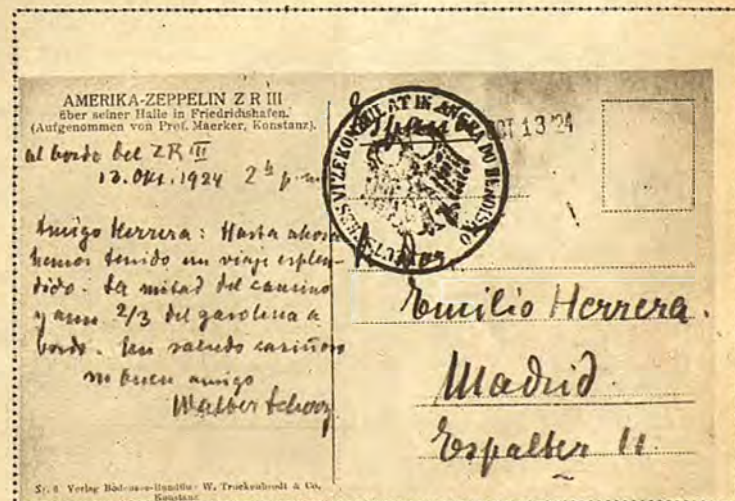 AMERIKA-ZEPPELIN Z R III
über seiner Halle in Friedrichshafen.
(Aufgenommen von Prof. Maerker, Konstanz).
al bordo del ZR III
13. Okt. 1924 2 h p. m.
Amigo Herrera: Hasta ahora
hemos tenido un viaje esplen-
dido. La mitad del camino
y aun 2/3 del gasolina a
bordo. Un saludo cariñoso
su buen amigo
Walter
Verlag Bodensee-Rundflug W. Truckenbrodt & Co,
Konstanz
DEUTSCHES VIZEKONSULAT IN ANGRA DO HEROISMO
OCT 13 '24
Emilio Herrera.
Madrid.
Espalter 11.